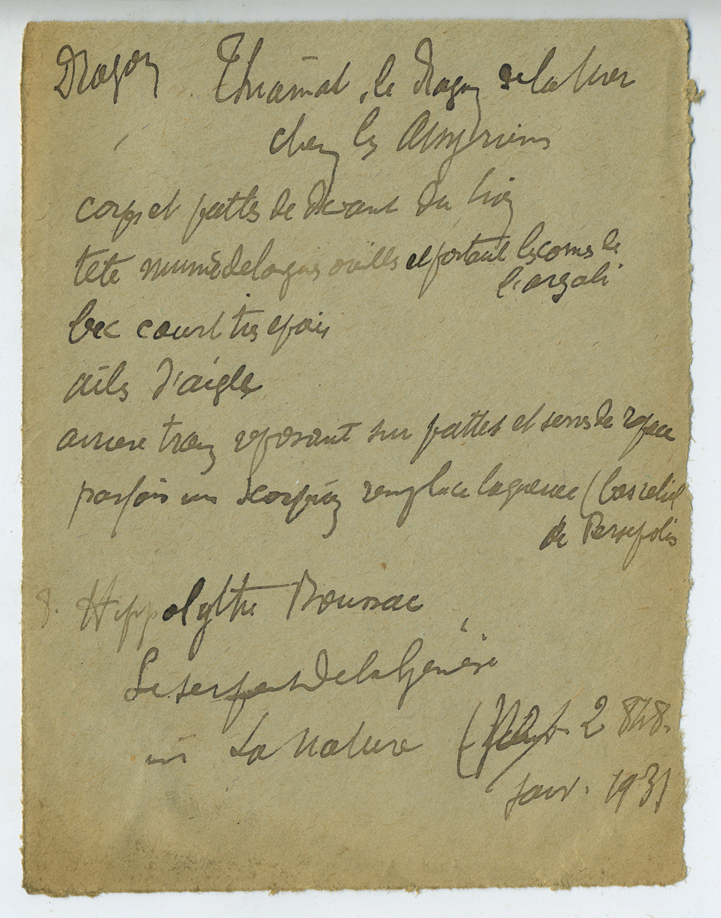 Dragon Thiamat, le dragon de la Mer
chez les Assyriens
corps et pattes de devant du lion
tete munie de longues oreilles et portant les cornes de
l'argali
bec court tres epais
ailes d'aigle
arriere train reposant sur pattes et serres de rapace
parfois un scorpion remplace la queue (bas relief
de Persepolis
Hippolythe Boussac
Le serpent de la Genèse
in La Nature ( 2 848.
Janv. 1931